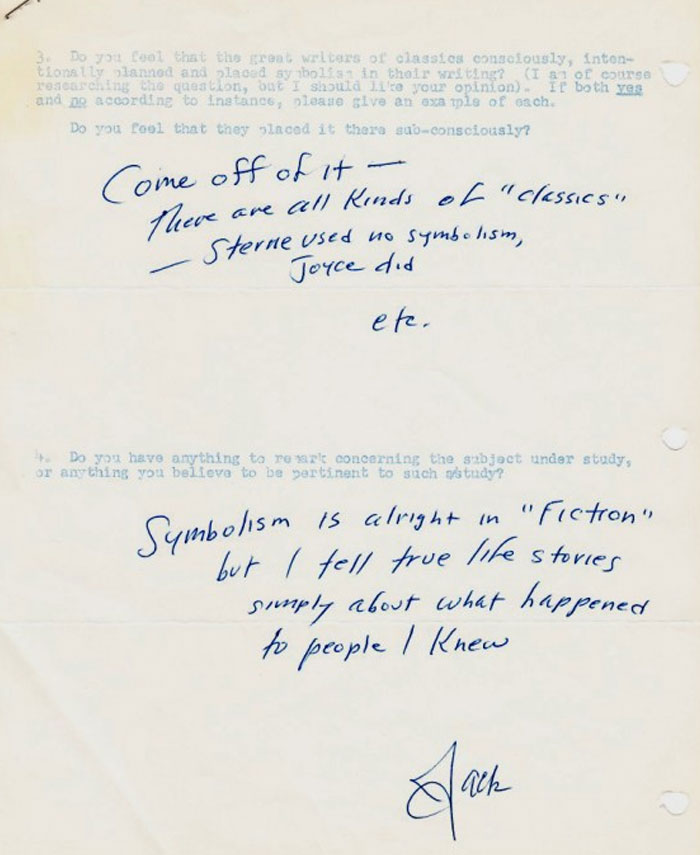 3. Do you feel that the great writers of classics consciously, inten-
tionally planned and placed symbolism in their writing? (I am of course
researching the question, but I should like your opinion). If both yes
and no according to instance, please give an example of each.
Do you feel that they placed it there sub-consciously?
Come off of it —
There are all kinds of "classics"
— Sterne used no symbolism,
Joyce did
etc.
4. Do you have anything to remark concerning the subject under study,
or anything you believe to be pertinent to such a study?
Symbolism is alright in "Fiction"
but I tell true life stories
simply about what happened
to people I knew
Jack